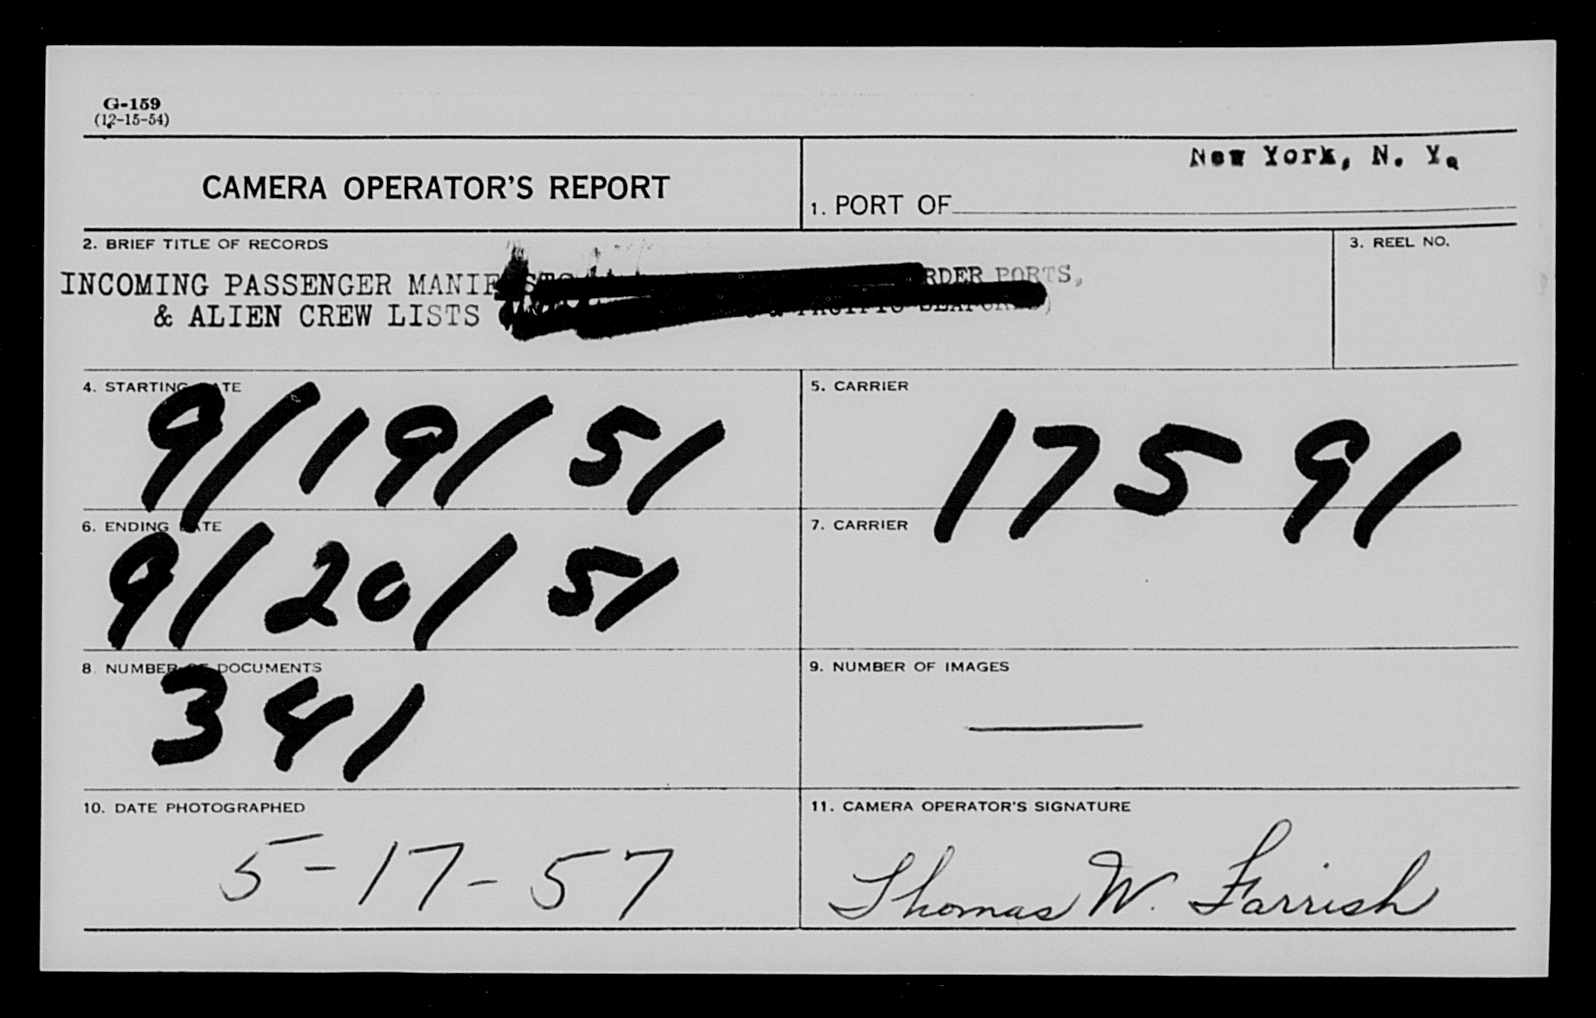 G-159
(12-15-54)
CAMERA OPERATOR'S REPORT
New York, N. Y.
1. PORT OF
2. BRIEF TITLE OF RECORDS
3. REEL NO.
INCOMING PASSENGER MANIFESTS RDER PORTS,
& ALIEN CREW LISTS & PACIFIC SEAPORTS)
4. STARTING DATE
9/19/51
5. CARRIER
17591
6. ENDING DATE
9/20/51
7. CARRIER
8. NUMBER OF DOCUMENTS
341
9. NUMBER OF IMAGES
—
10. DATE PHOTOGRAPHED
5-17-57
11. CAMERA OPERATOR'S SIGNATURE
Thomas W. Farrish